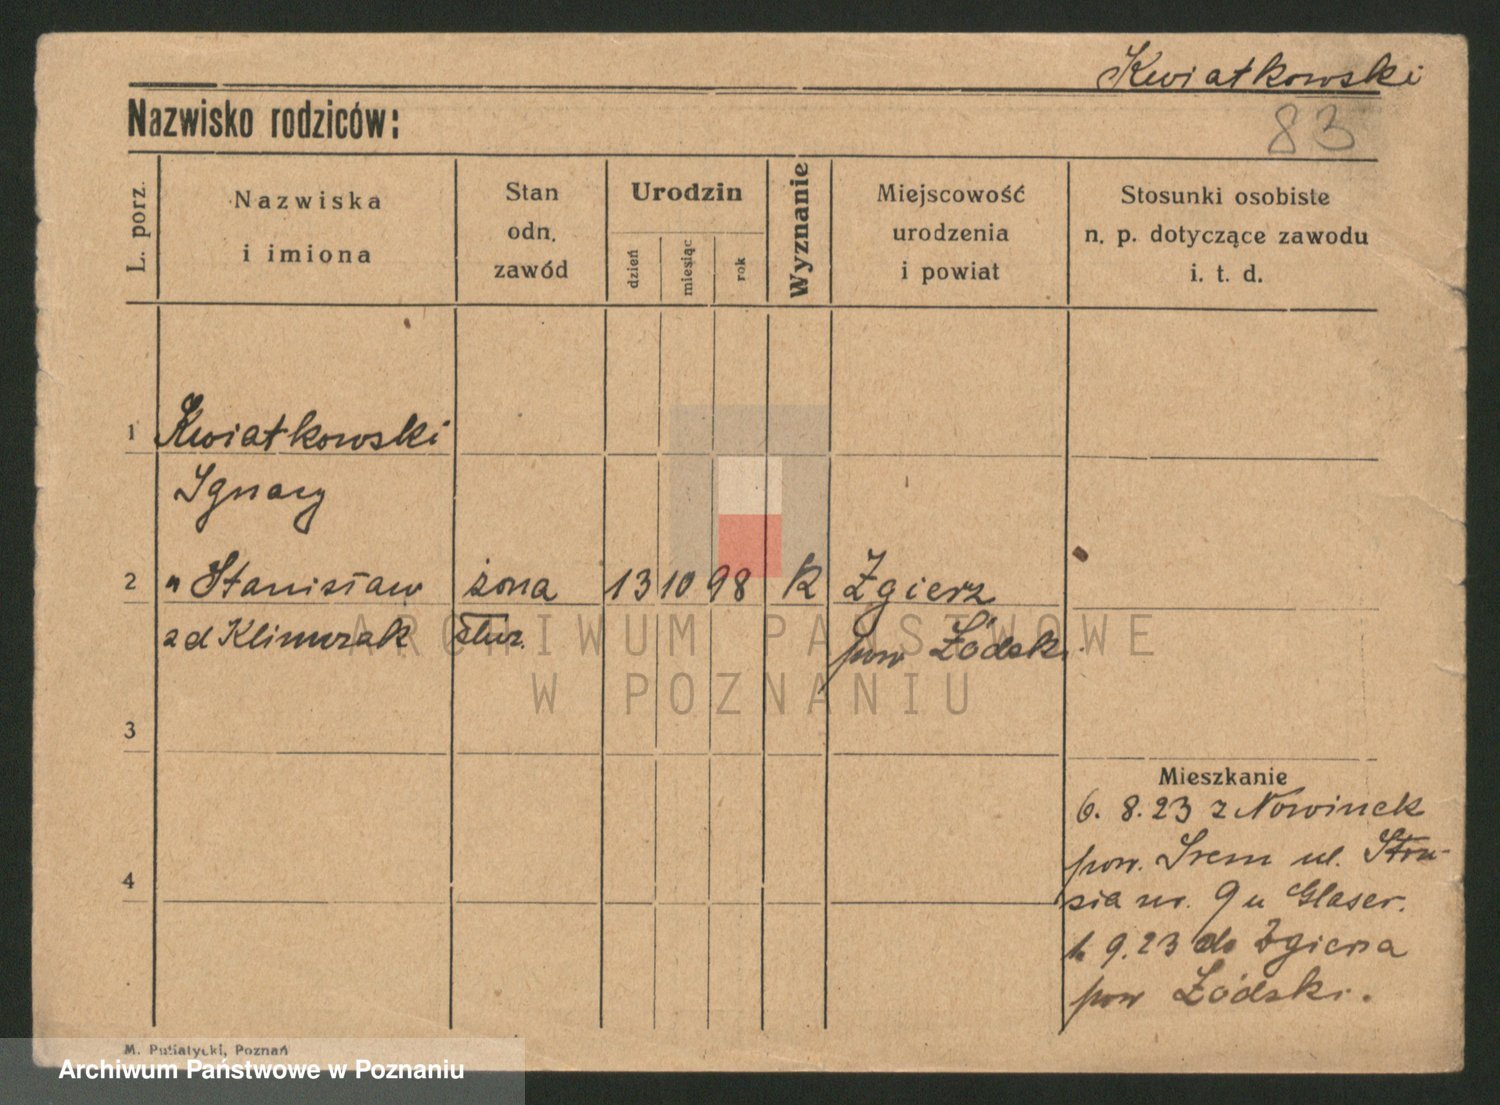 Kwiatkowski
83
Nazwisko rodziców:
L. porz.
Nazwiska
i imiona
Stan
odn.
zawód
Urodzin
dzień
miesiąc
rok
Wyznanie
Miejscowość
urodzenia
i powiat
Stosunki osobiste
n. p. dotyczące zawodu
i. t. d.
1 Kwiatkowski
Ignacy
2 " Stanisław żona 13 10 98 k Zgierz
zd Klimczak służ. pow Łódski
ARCHIWUM PAŃSTWOWE
W POZNANIU
3
Mieszkanie
6. 8. 23 z Nowinek
pow. Śrem ul.
4
nr. 9 u Glaser.
9. 23 do Zgierza
pow Łódski.
M. Putiatycki, Poznań
Archiwum Państwowe w Poznaniu